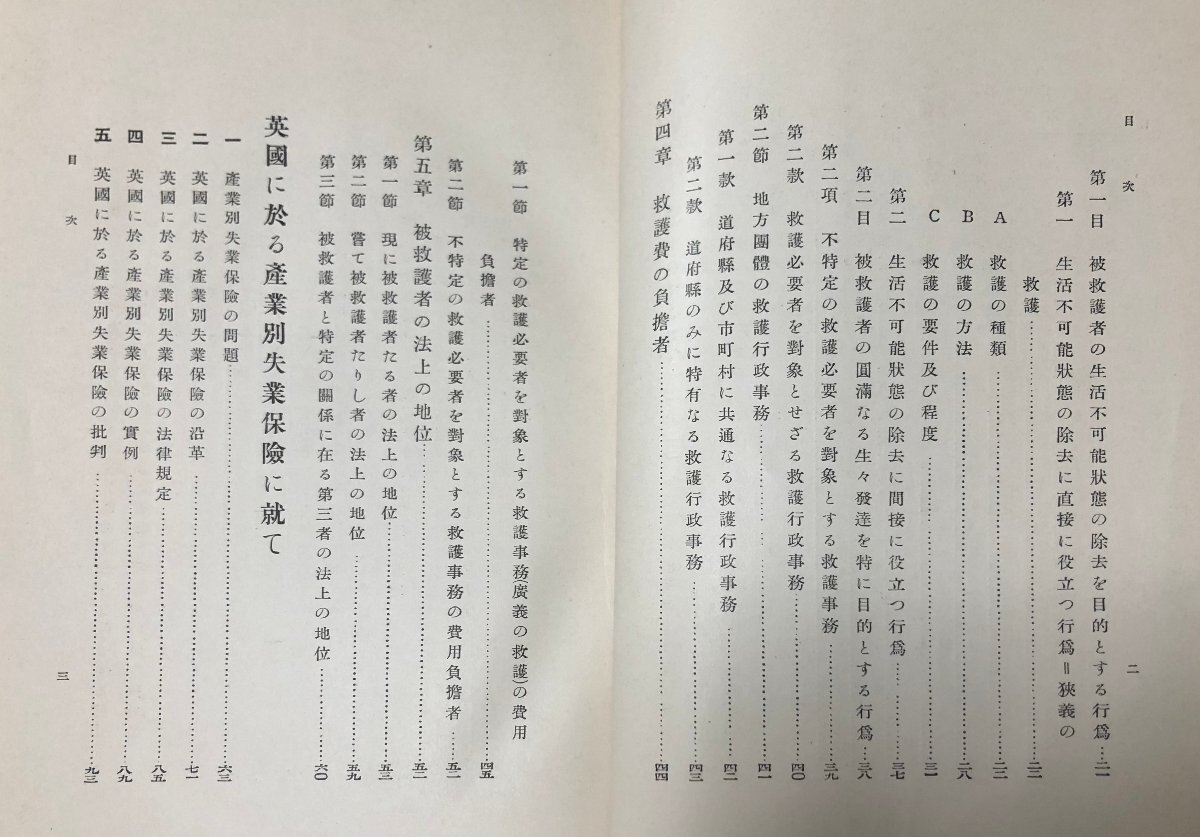 目次
二
第一目 被救護者の生活不可能狀態の除去を目的とする行爲…二一
第一 生活不可能狀態の除去に直接に役立つ行爲＝狹義の
救護…二二
A 救護の種類…二二
B 救護の方法…二八
C 救護の要件及び程度…三一
第二 生活不可能狀態の除去に間接に役立つ行爲…三七
第二目 被救護者の圓滿なる生々發達を特に目的とする行爲…三八
第二項 不特定の救護必要者を對象とする救護事務…三九
第二款 救護必要者を對象とせざる救護行政事務…四〇
第二節 地方團體の救護行政事務…四一
第一款 道府縣及び市町村に共通なる救護行政事務…四二
第二款 道府縣のみに特有なる救護行政事務…四三
第四章 救護費の負擔者…四四
第一節 特定の救護必要者を對象とする救護事務(廣義の救護)の費用
負擔者…四五
第二節 不特定の救護必要者を對象とする救護事務の費用負擔者…五二
第五章 被救護者の法上の地位…五二
第一節 現に被救護者たる者の法上の地位…五三
第二節 嘗て被救護者たりし者の法上の地位…五九
第三節 被救護者と特定の關係に在る第三者の法上の地位…六〇
英國に於る產業別失業保險に就て
一 產業別失業保險の問題…六三
二 英國に於る產業別失業保險の沿革…七一
三 英國に於る產業別失業保險の法律規定…八五
四 英國に於る產業別失業保險の實例…八九
五 英國に於る產業別失業保險の批判…九三
目次
三